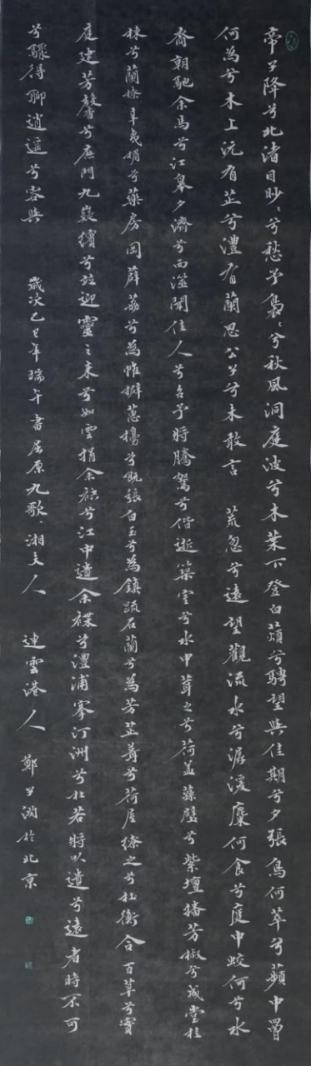 帝子降兮北渚目眇々兮愁予嫋々兮秋風洞庭波兮木葉下登白薠兮騁望與佳期兮夕張鳥何萃兮蘋中罾
何為兮木上沅有芷兮澧有蘭思公子兮未敢言 荒忽兮遠望觀流水兮潺湲麋何食兮庭中蛟何兮水
裔朝馳余馬兮江皋夕濟兮西澨聞佳人兮召予將騰駕兮偕逝築室兮水中葺之兮荷蓋蓀壁兮紫壇播芳椒兮成堂桂
棟兮蘭橑辛夷楣兮藥房罔薜荔兮為帷擗蕙櫋兮既張白玉兮為鎮疏石蘭兮為芳芷葺兮荷屋繚之兮杜衡合百草兮實
庭建芳馨兮廡門九嶷繽兮並迎靈之來兮如雲捐余袂兮江中遺余褋兮澧浦搴汀洲兮杜若將以遺兮遠者時不可
兮驟得聊逍遙兮容與 歲次乙巳年端午書屈原九歌・湘夫人 連雲港人 鄭 於北京